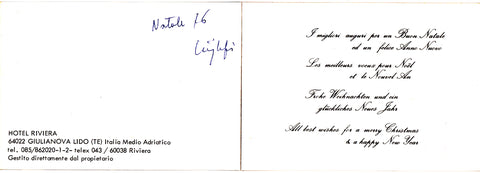 Natale 76
HOTEL RIVIERA
64022 GIULIANOVA LIDO (TE) Italia Medio Adriatico
tel. 085/862020-1-2- telex 043 / 60038 Riviera
Gestito direttamente dal propietario
I migliori auguri per un Buon Natale
ed un felice Anno Nuovo
Les meilleurs voeux pour Noël
et le Nouvel An
Frohe Weihnachten und ein
glückliches Neues Jahr
All best wishes for a merry Christmas
& a happy New Year